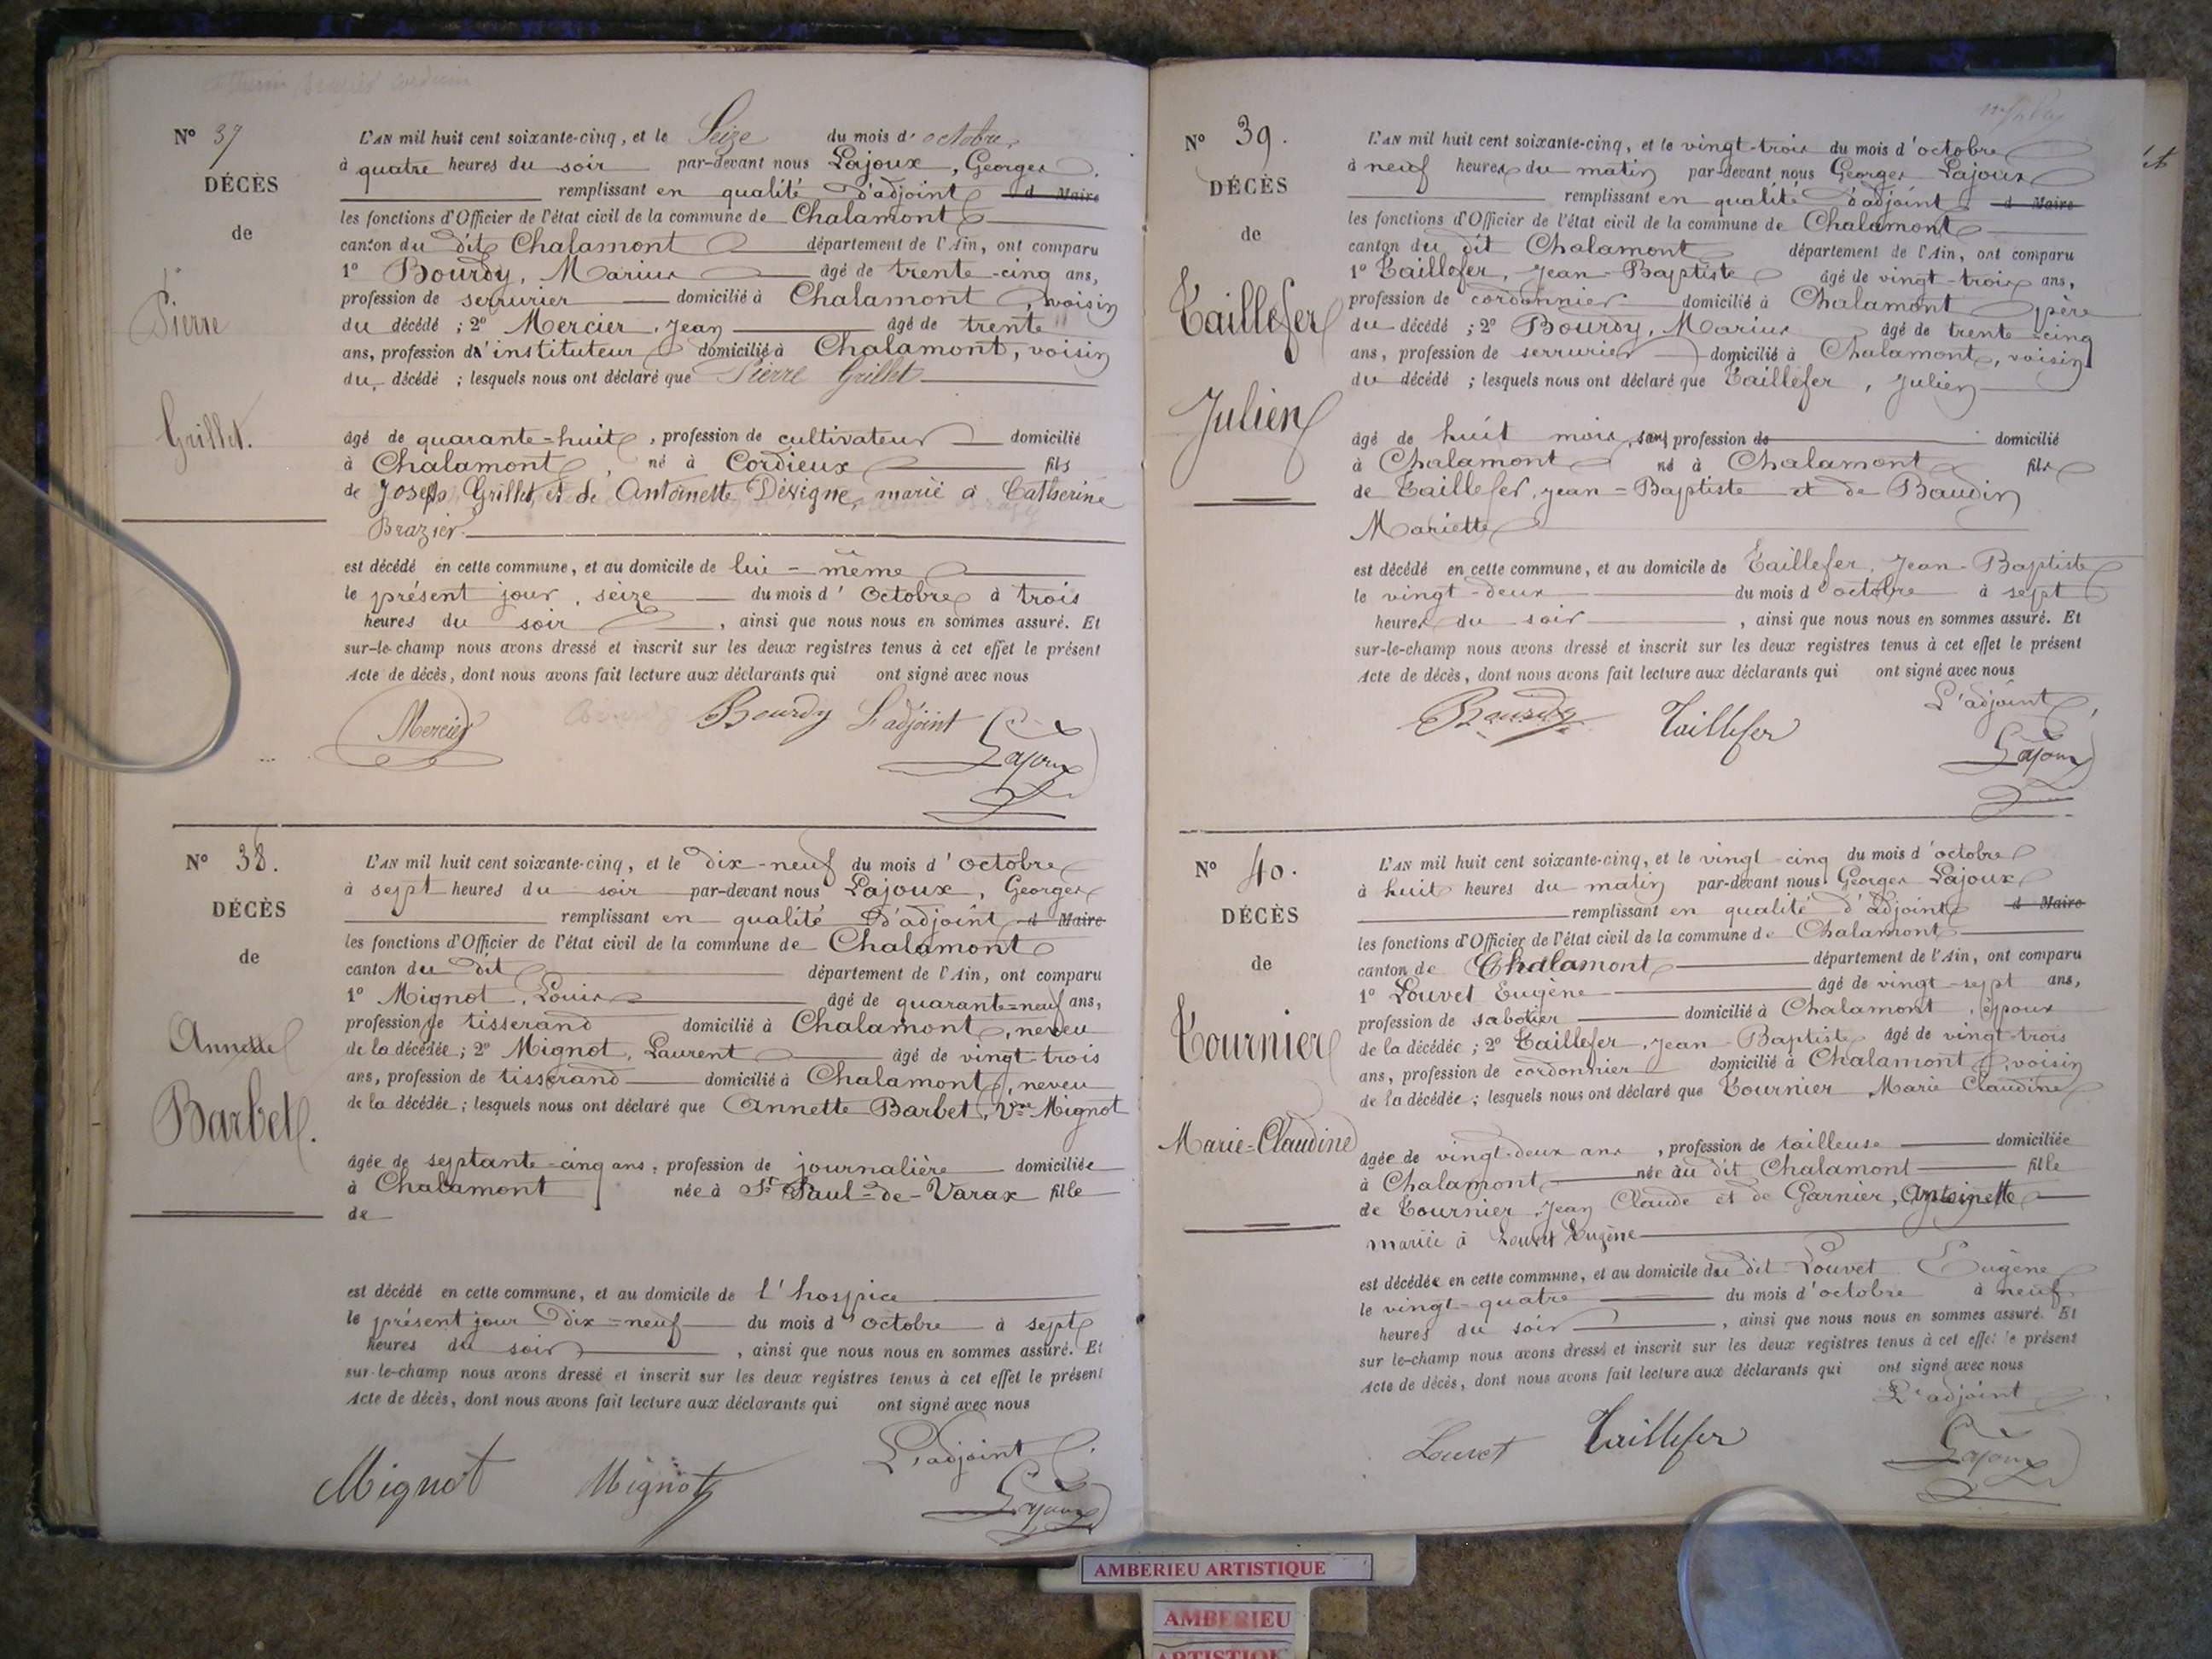 N° 37
DÉCÈS
de
Pierre
Grillet.
L'AN mil huit cent soixante-cinq, et le Seize du mois d'octobre
à quatre heures du soir par-devant nous Lajoux, Georges
remplissant en qualité d'adjoint d Maire
les fonctions d'Officier de l'état civil de la commune de Chalamont
canton du dit Chalamont département de l'Ain, ont comparu
1° Bourdy, Marius âgé de trente-cinq ans,
profession de serrurier domicilié à Chalamont, voisin
du décédé ; 2° Mercier, Jean âgé de trente
ans, profession d'instituteur domicilié à Chalamont, voisin
du décédé ; lesquels nous ont déclaré que Pierre Grillet
âgé de quarante=huit, profession de cultivateur domicilié
à Chalamont, né à Cordieux fils
de Joseph Grillet et de Antoinette Dévigne, marié à Catherine
Brazier.
est décédé en cette commune, et au domicile de lui-même
le présent jour, seize du mois d'octobre à trois
heures du soir, ainsi que nous nous en sommes assuré. Et
sur-le-champ nous avons dressé et inscrit sur les deux registres tenus à cet effet le présent
Acte de décès, dont nous avons fait lecture aux déclarants qui ont signé avec nous
Mercier Bourdy L'adjoint
Lajoux
N° 38.
DÉCÈS
de
Annette
Barbet.
L'AN mil huit cent soixante-cinq, et le dix-neuf du mois d'octobre
à sept heures du soir par-devant nous Lajoux, Georges
remplissant en qualité d'adjoint d Maire
les fonctions d'Officier de l'état civil de la commune de Chalamont
canton du dit département de l'Ain, ont comparu
1° Mignot, Louis âgé de quarante=neuf ans,
profession de tisserand domicilié à Chalamont, neveu
de la décédée ; 2° Mignot, Laurent âgé de vingt-trois
ans, profession de tisserand domicilié à Chalamont, neveu
de la décédée ; lesquels nous ont déclaré que Annette Barbet, Vve Mignot
âgée de septante-cinq ans, profession de journalière domiciliée
à Chalamont née à St Paul=de-Varax fille
de
est décédé en cette commune, et au domicile de l'hospice
le présent jour dix=neuf du mois d'octobre à sept
heures du soir, ainsi que nous nous en sommes assuré. Et
sur-le-champ nous avons dressé et inscrit sur les deux registres tenus à cet effet le présent
Acte de décès, dont nous avons fait lecture aux déclarants qui ont signé avec nous
L'adjoint
Mignot Mignot Lajoux
N° 39.
DÉCÈS
de
Taillefer
Julien
L'AN mil huit cent soixante-cinq, et le vingt-trois du mois d'octobre
à neuf heures du matin par-devant nous Georges Lajoux
remplissant en qualité d'adjoint d Maire
les fonctions d'Officier de l'état civil de la commune de Chalamont
canton du dit Chalamont département de l'Ain, ont comparu
1° Taillefer, Jean-Baptiste âgé de vingt-trois ans,
profession de cordonnier domicilié à Chalamont père
du décédé ; 2° Bourdy, Marius âgé de trente-cinq
ans, profession de serrurier domicilié à Chalamont, voisin
du décédé ; lesquels nous ont déclaré que Taillefer, Julien
âgé de huit mois, sans profession de domicilié
à Chalamont né à Chalamont fils
de Taillefer, Jean=Baptiste et de Baudin
Mariette
est décédé en cette commune, et au domicile de Taillefer, Jean-Baptiste
le vingt-deux du mois d'octobre à sept
heures du soir, ainsi que nous nous en sommes assuré. Et
sur-le-champ nous avons dressé et inscrit sur les deux registres tenus à cet effet le présent
Acte de décès, dont nous avons fait lecture aux déclarants qui ont signé avec nous
L'adjoint,
Bourdy Taillefer Lajoux
N° 40.
DÉCÈS
de
Tournier
Marie-Claudine
L'AN mil huit cent soixante-cinq, et le vingt-cinq du mois d'octobre
à huit heures du matin par-devant nous Georges Lajoux
remplissant en qualité d'adjoint d Maire
les fonctions d'Officier de l'état civil de la commune de Chalamont
canton de Chalamont département de l'Ain, ont comparu
1° Louvet Eugène âgé de vingt-sept ans,
profession de sabotier domicilié à Chalamont, époux
de la décédée ; 2° Taillefer, Jean-Baptiste âgé de vingt-trois
ans, profession de cordonnier domicilié à Chalamont, voisin
de la décédée ; lesquels nous ont déclaré que Tournier Marie Claudine
âgée de vingt-deux ans, profession de tailleuse domiciliée
à Chalamont née au dit Chalamont fille
de Tournier, Jean Claude et de Garnier, Antoinette
mariée à Louvet Eugène
est décédée en cette commune, et au domicile du dit Louvet Eugène
le vingt-quatre du mois d'octobre à neuf
heures du soir, ainsi que nous nous en sommes assuré. Et
sur le-champ nous avons dressé et inscrit sur les deux registres tenus à cet effet le présent
Acte de décès, dont nous avons fait lecture aux déclarants qui ont signé avec nous
L'adjoint
Louvet Taillefer Lajoux
AMBERIEU ARTISTIQUE
AMBERIEU
ARTISTIQUE